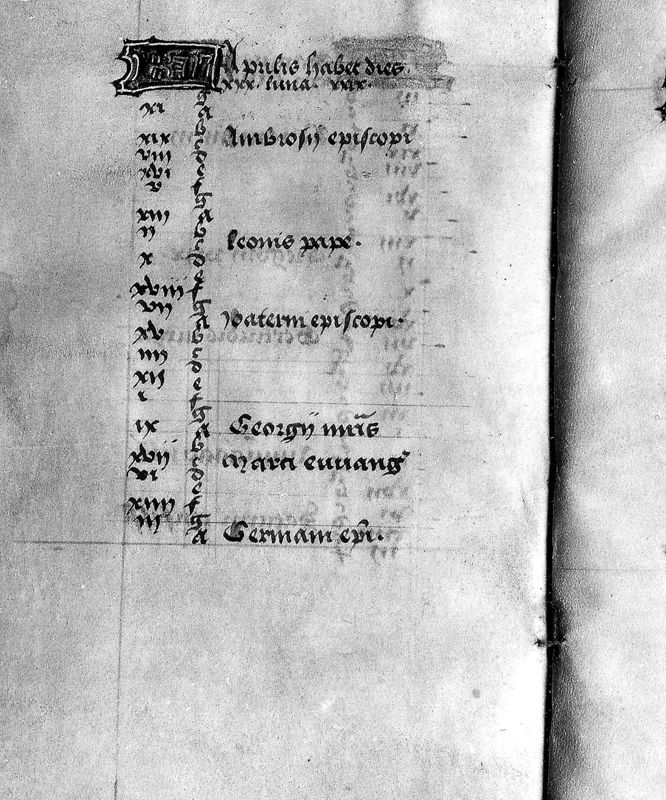 KL Aprilis habet dies
xxx. luna. xxix.
g
xi A
b
xix c Ambrosij episcopi
viii d
xvi e
v f
g
xiii A
ii b
c Leonis pape.
x d
e
xviii f
vii g
A Paterni episcopi.
xv b
iiii c
d
xii e
i f
g
ix A Georgij mr̃is
b
xvii c Marci euuang
vi d
e
xiiii f
iii g
A Germani ep̃i.